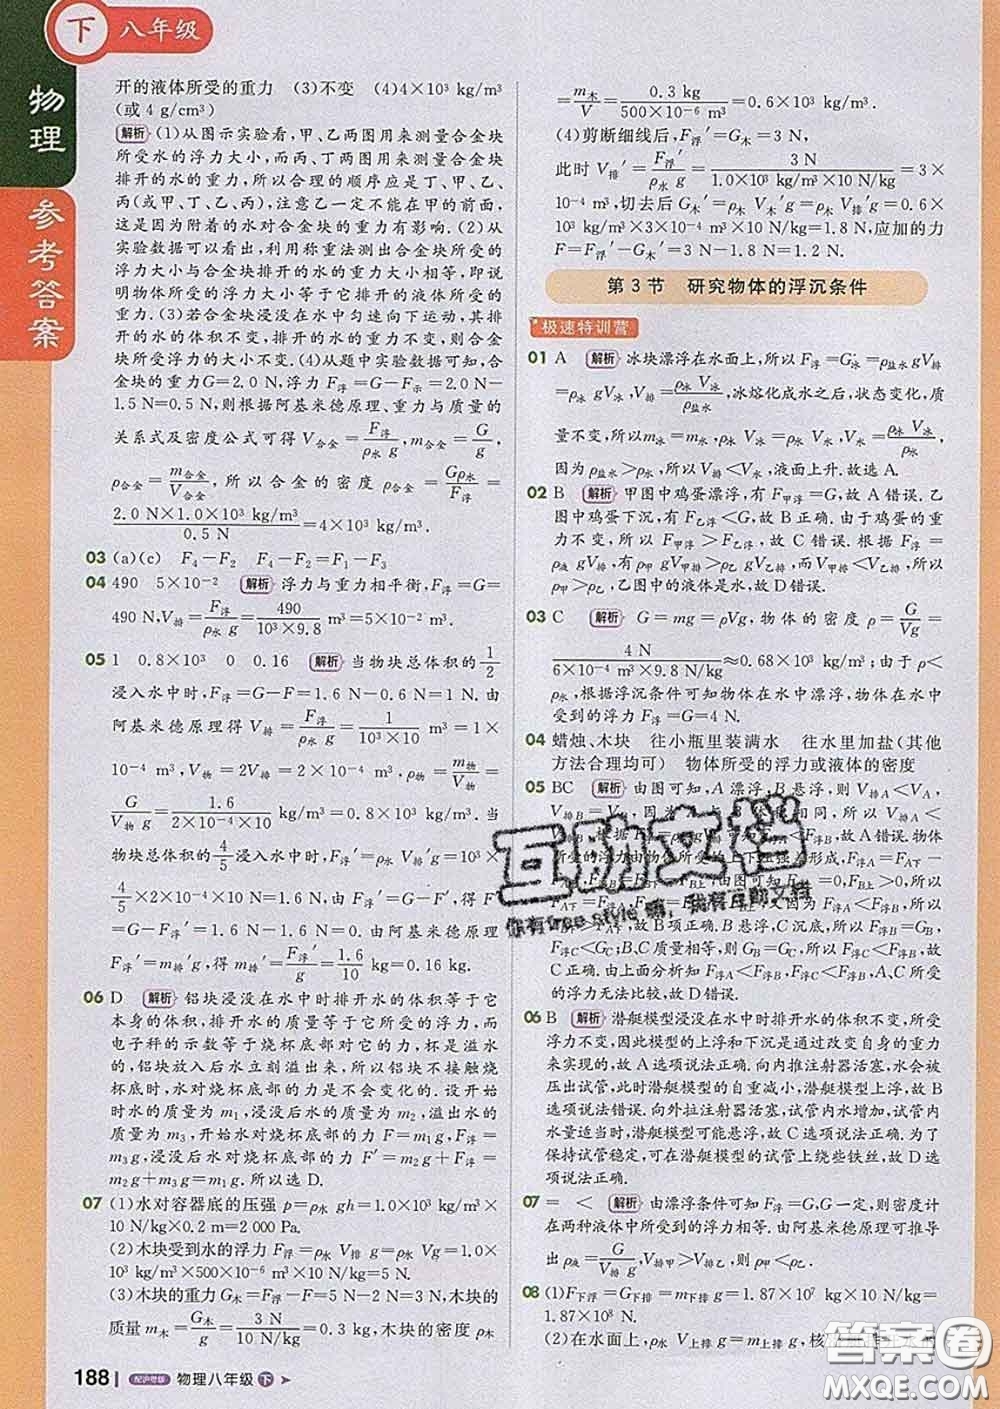 下 八年级
物理
参考答案
开的液体所受的重力 (3)不变 (4)4×10³ kg/m³
(或 4 g/cm³)
解析 (1)从图示实验看,甲、乙两图用来测量合金块
所受水的浮力大小,而丙、丁两图用来测量合金块
排开的水的重力,所以合理的顺序应是丁、甲、乙、
丙(或甲、丁、乙、丙),注意乙一定不能在甲的前面,
这是因为附着的水对合金块的重力有影响.(2)从
实验数据可以看出,利用称重法测出合金块所受的
浮力大小与合金块排开的水的重力大小相等,即说
明物体所受的浮力大小等于它排开的液体所受的重
力.(3)若合金块浸没在水中匀速向下运动,其排
开的水的体积不变,所受的浮力大小不变,则合金块
所受浮力的大小不变.(4)从题中实验数据可知,合
金块的重力G=2.0 N,浮力 F浮=G-F示=2.0 N-
1.5 N=0.5 N,则根据阿基米德原理、重力与质量的
关系式及密度公式可得 V合金=F浮/ρ水 g,m合金=G/g,
ρ合金=m合金/V合金,所以合金的密度 ρ合金=Gρ水/F浮=
2.0 N×1.0×10³ kg/m³/0.5 N=4×10³ kg/m³.
03 (a)(c) F₄-F₂ F₄-F₂=F₁-F₃
04 490 5×10⁻² 解析 浮力与重力相平衡,F浮=G=
490 N,V排=F浮/ρ水 g=490/10³×9.8 m³=5×10⁻² m³.
05 1 0.8×10³ 0 0.16 解析 当物块总体积的1/2
浸入水中时,F浮=G-F=1.6 N-0.6 N=1 N. 由
阿基米德原理得 V排=F浮/ρ水 g=1/10³×10 m³=1×
10⁻⁴ m³,V物=2V排=2×10⁻⁴ m³,ρ物=m物/V物=
G/V物 g=1.6/2×10⁻⁴×10 kg/m³=0.8×10³ kg/m³. 当
物块总体积的4/5浸入水中时,F浮′=ρ水 V排′g=10³×
4/5×2×10⁻⁴×10 N=1.6 N. 由 F浮′=G-F′,得 F′
=G-F浮′=1.6 N-1.6 N=0. 由阿基米德原理
F浮′=m排′g得 m排′=F浮′/g=1.6/10 kg=0.16 kg.
06 D 解析 铝块浸没在水中时排开水的体积等于它
本身的体积,排开水的质量等于它所受的浮力,而
电子秤的示数等于烧杯底部对它的力,杯是溢水
的,铝块放入后水立刻溢出来,所以铝块不接触烧
杯底时,水对烧杯底部的力是不会变化的. 设开始
时水的质量为 m₁,浸没后水的质量为 m₂,溢出水的
质量为 m₃,开始水对烧杯底部的力 F=m₁g,F浮=
m₃g,浸没后水对烧杯底部的力 F′=m₂g+F浮=m₂g+
m₃g=m₁g. 所以选 D.
07 (1)水对容器底的压强 p=ρ水 gh=1.0×10³ kg/m³×
10 N/kg×0.2 m=2 000 Pa.
(2)木块受到水的浮力 F浮=ρ水 V排 g=ρ水 Vg=1.0×
10³ kg/m³×500×10⁻⁶ m³×10 N/kg=5 N.
(3)木块的重力 G木=F浮-F=5 N-2 N=3 N,木块的
质量 m木=G木/g=3 N/10 N/kg=0.3 kg,木块的密度 ρ木
=m木/V=0.3 kg/500×10⁻⁶ m³=0.6×10³ kg/m³.
(4)剪断细线后,F浮′=G木=3 N,
此时 V排′=F浮′/ρ水 g=3 N/1.0×10³ kg/m³×10 N/kg=3×
10⁻⁴ m³,切去后 G木′=ρ木 V木′g=ρ木 V排′g=0.6×
10³ kg/m³×3×10⁻⁴ m³×10 N/kg=1.8 N,应加的力
F=F浮′-G木′=3 N-1.8 N=1.2 N.
第3节 研究物体的浮沉条件
极速特训营
01 A 解析 冰块漂浮在水面上,所以 F浮=G冰=ρ盐水 gV排
=ρ冰 gV冰,V排=ρ冰 V冰/ρ盐水,冰熔化成水之后,状态变化,质
量不变,所以m冰=m水=ρ冰 V冰=ρ水 V水,V水=ρ冰 V冰/ρ水,
因为 ρ盐水>ρ水,所以 V排<V水,液面上升.故选A.
02 B 解析 甲图中鸡蛋漂浮,有 F甲浮=G,故 A 错误. 乙
图中鸡蛋下沉,有 F乙浮<G,故 B 正确. 由于鸡蛋的重
力不变,所以 F甲浮>F乙浮,故 C 错误. 由于 F浮=
ρ液 gV排,乙图中的液体是水,故 D 错误.
03 C 解析 G=mg=ρVg,物体的密度 ρ=G/Vg=
4 N/6×10⁻⁴ m³×9.8 N/kg≈0.68×10³ kg/m³;由于 ρ<
ρ水,根据浮沉条件可知物体在水中漂浮,物体在水中
受到的浮力 F浮=G=4 N.
04 蜡烛、木块 往小瓶里装满水 往水里加盐(其他
方法合理均可) 物体所受的浮力或液体的密度
05 BC 解析 由图可知,A 漂浮,B 悬浮,则 V排A<V排B,
06 B 解析 潜艇模型浸没在水中时排开水的体积不变,所受
浮力不变,因此模型的上浮和下沉是通过改变自身的重力
来实现的,故 A 选项说法正确. 向内推注射器活塞,水会被
压出试管,此时潜艇模型的自重减小,潜艇模型上浮,故 B
选项说法错误. 向外拉注射器活塞,试管内水增加,试管内
水量适当时,潜艇模型可能悬浮,故 C 选项说法正确. 为了
保持试管稳定,可在潜艇模型上绕些铁丝,故 D 选
项说法正确.
07 = < 解析 由漂浮条件可知 F浮=G,G一定,则密度计
在两种液体中所受到的浮力相等. 由阿基米德原理可推导
出 ρ液=G/V排 g,V排甲>V排乙,则 ρ甲<ρ乙.
08 (1)F下浮=G下排=m下排 g=1.87×10⁷ kg×10 N/kg=
1.87×10⁸ N.
(2)在水面上,ρ水 V上排 g=m上排 g,核
188 配沪粤版 物理八年级 下
互助文档
你有free style 吗,我有互助文档
答案圈
MXQE.COM